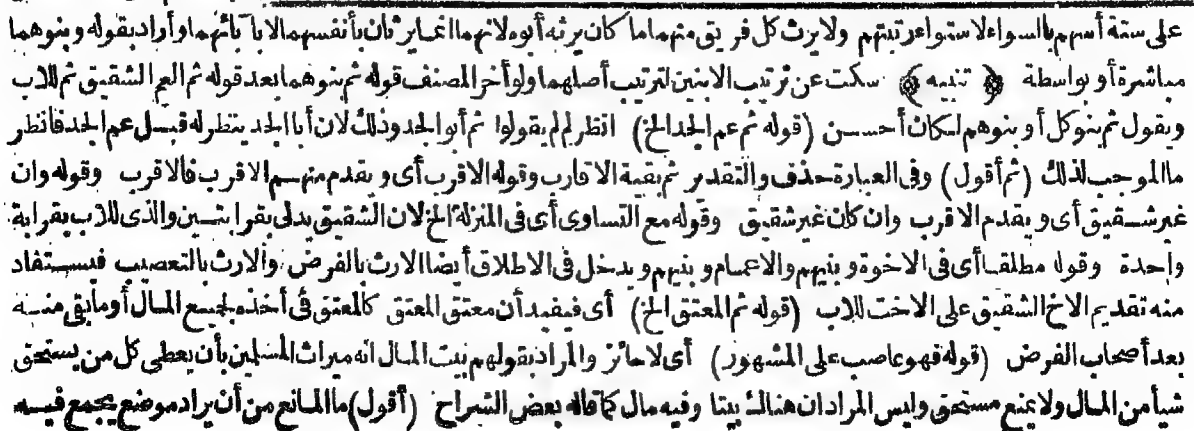 على ستة أسهم بالسواء لاستواء رتبتهم ولا يرث كل فريق منهما ما كان يرثه أبوه لانهم انما يرثون بأنفسهم لا بآبائهم وأراد بقوله وبنوهما
مباشرة أو بواسطة ﴿تنبيه﴾ سكت عن ترتيب الابنين لترتيب أصلهما ولو أخر المصنف قوله ثم بنوهما بعد قوله ثم العم الشقيق ثم للاب
ويقول ثم بنو كل أو بنوهم لكان أحسن (قوله ثم عم الجد الخ) انظر لم لم يقولوا ثم أبو الجد وذلك لان أبا الجد ينظر له قبل عم الجد فانظر
ما الموجب لذلك (ثم أقول) وفى العبارة حذف والتقدير ثم بقية الاقارب وقوله الاقرب أى ويقدم منهم الاقرب فالاقرب وقوله وان
غير شقيق أى ويقدم الاقرب وان كان غير شقيق وقوله مع التساوى أى فى المنزلة الخ لان الشقيق يدلى بقرابتين والذى للاب بقرابة
واحدة وقوله مطلقا أى فى الاخوة وبنيهم والاعمام وبنيهم ويدخل فى الاطلاق أيضا الارث بالفرض والارث بالتعصيب فيستفاد
منه تقديم الاخ الشقيق على الاخت للاب (قوله ثم المعتق الخ) أى فيفيد أن معتق المعتق كالمعتق فى أخذه لجميع المال أو ما بقى منه
بعد أصحاب الفرض (قوله فهو عاصب على المشهور) أى لا حائز والمراد بقولهم بيت المال انه ميراث المسلمين بأن يعطى كل من يستحق
شيأ من المال ولا يمنع مستحق وليس المراد ان هناك بيتا وفيه مال كما قاله بعض الشراح (أقول) ما المانع من أن يراد موضع يجمع فيه